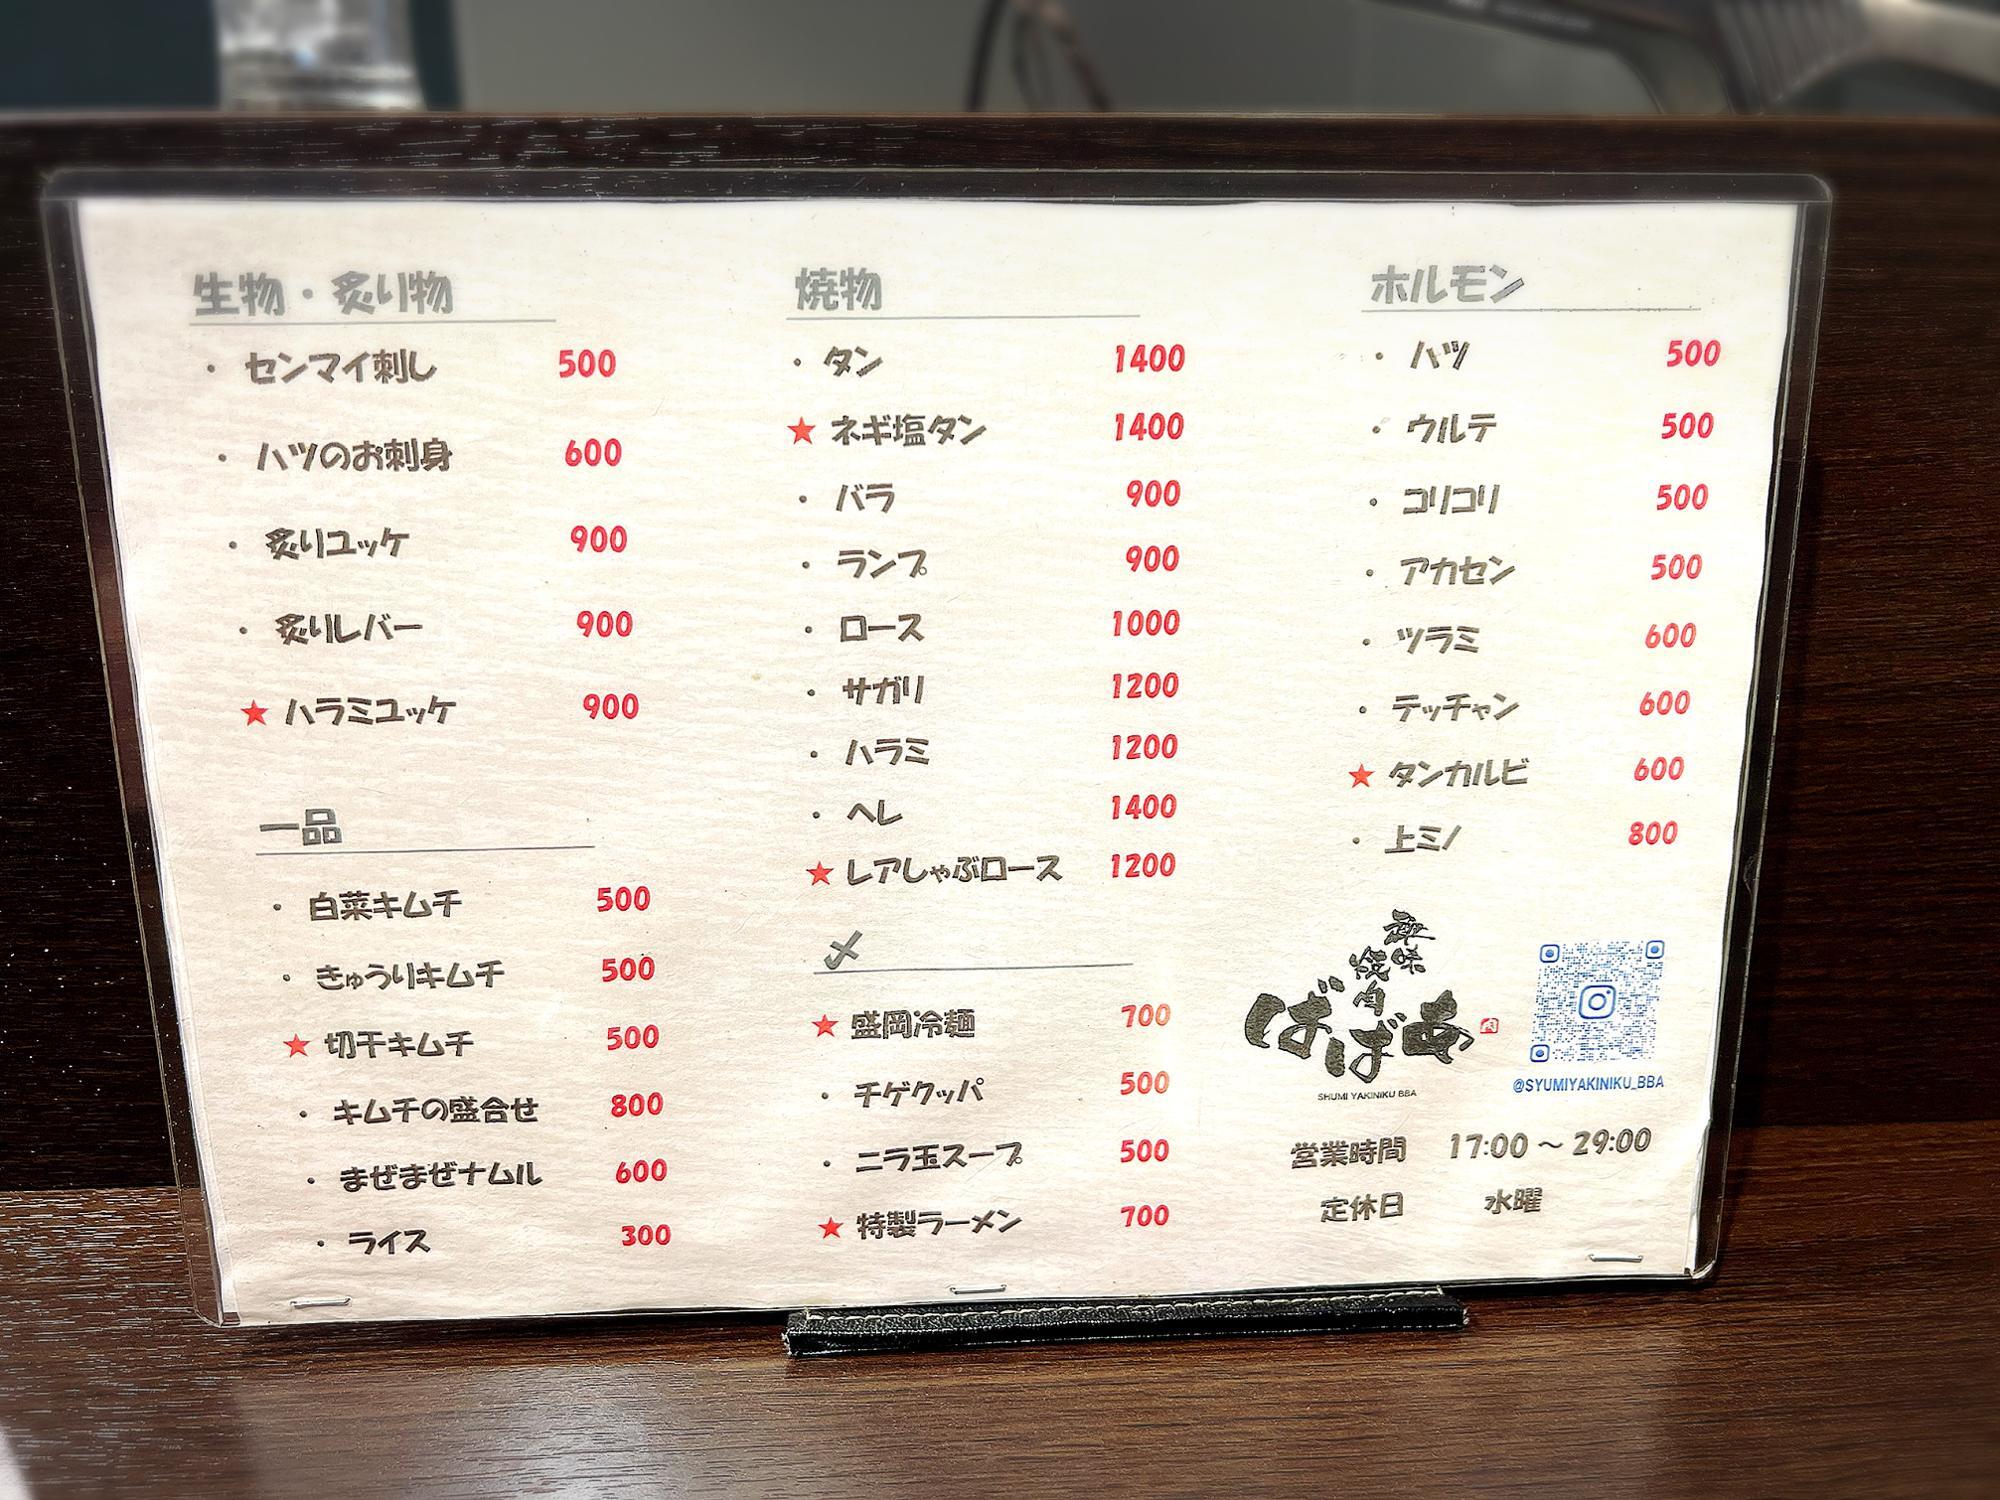 生物・炙り物
・ センマイ刺し 500
・ ハツのお刺身 600
・ 炙りユッケ 900
・ 炙りレバー 900
★ ハラミユッケ 900
一品
・ 白菜キムチ 500
・ きゅうりキムチ 500
★ 切干キムチ 500
・ キムチの盛合せ 800
・ まぜまぜナムル 600
・ ライス 300
焼物
・ タン 1400
★ ネギ塩タン 1400
・ バラ 900
・ ランプ 900
・ ロース 1000
・ サガリ 1200
・ ハラミ 1200
・ ヘレ 1400
★ レアしゃぶロース 1200
〆
★ 盛岡冷麺 700
・ チゲクッパ 500
・ ニラ玉スープ 500
★ 特製ラーメン 700
ホルモン
・ ハツ 500
・ ウルテ 500
・ コリコリ 500
・ アカセン 500
・ ツラミ 600
・ テッチャン 600
★ タンカルビ 600
・ 上ミノ 800
趣味
焼肉
ばばあ
SHUMI YAKINIKU BBA
@SYUMIYAKINIKU_BBA
営業時間 17:00 ～ 29:00
定休日 水曜